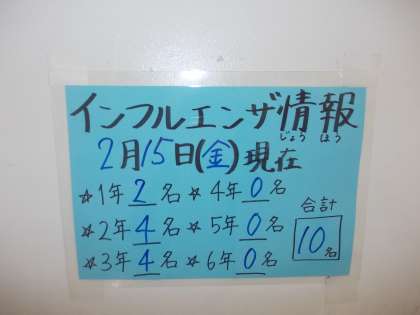 インフルエンザ情報
じょう ほう
2月15日(金)現在
☆1年 2 名 ☆ 4年 0 名
☆2年 4 名 ☆ 5年 0 名
☆3年 4 名 ☆ 6年 0 名
合計
10名